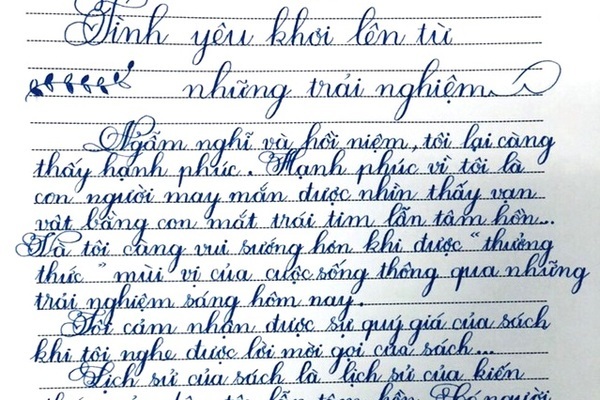 Tình yêu khơi lên từ
những trải nghiệm
Ngẫm nghĩ và hồi niệm, tôi lại càng
thấy hạnh phúc. Hạnh phúc vì tôi là
con người may mắn được nhìn thấy vạn
vật bằng con mắt trái tim lẫn tâm hồn...
Và tôi càng vui sướng hơn khi được "thưởng
thức" mùi vị của cuộc sống thông qua những
trải nghiệm sáng hôm nay.
Tôi cảm nhận được sự quý giá của sách
khi tôi nghe được lời mời gọi của sách...
Lịch sử của sách là lịch sử của kiến
lẫn tâm hồn người